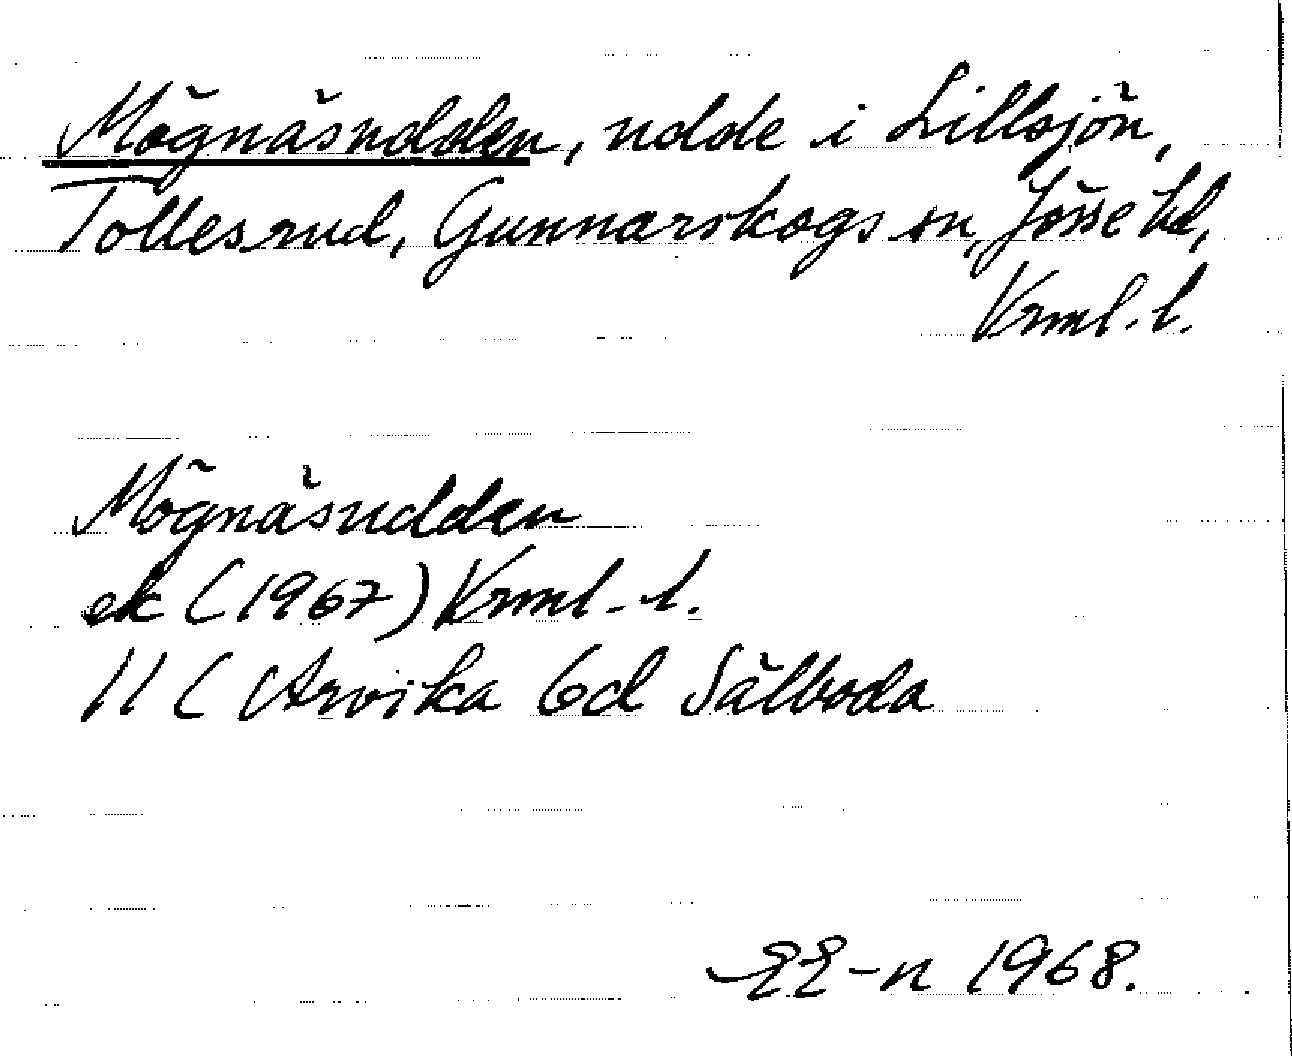 Mögnäsudden, udde i Lillsjön,
Tollesrud, Gunnarskogs sn, Jösse hd,
Vrml. l.
Mögnäsudden
ek (1967) Vrml. l.
11 C Arvika 6d Sälboda
EE-n 1968.